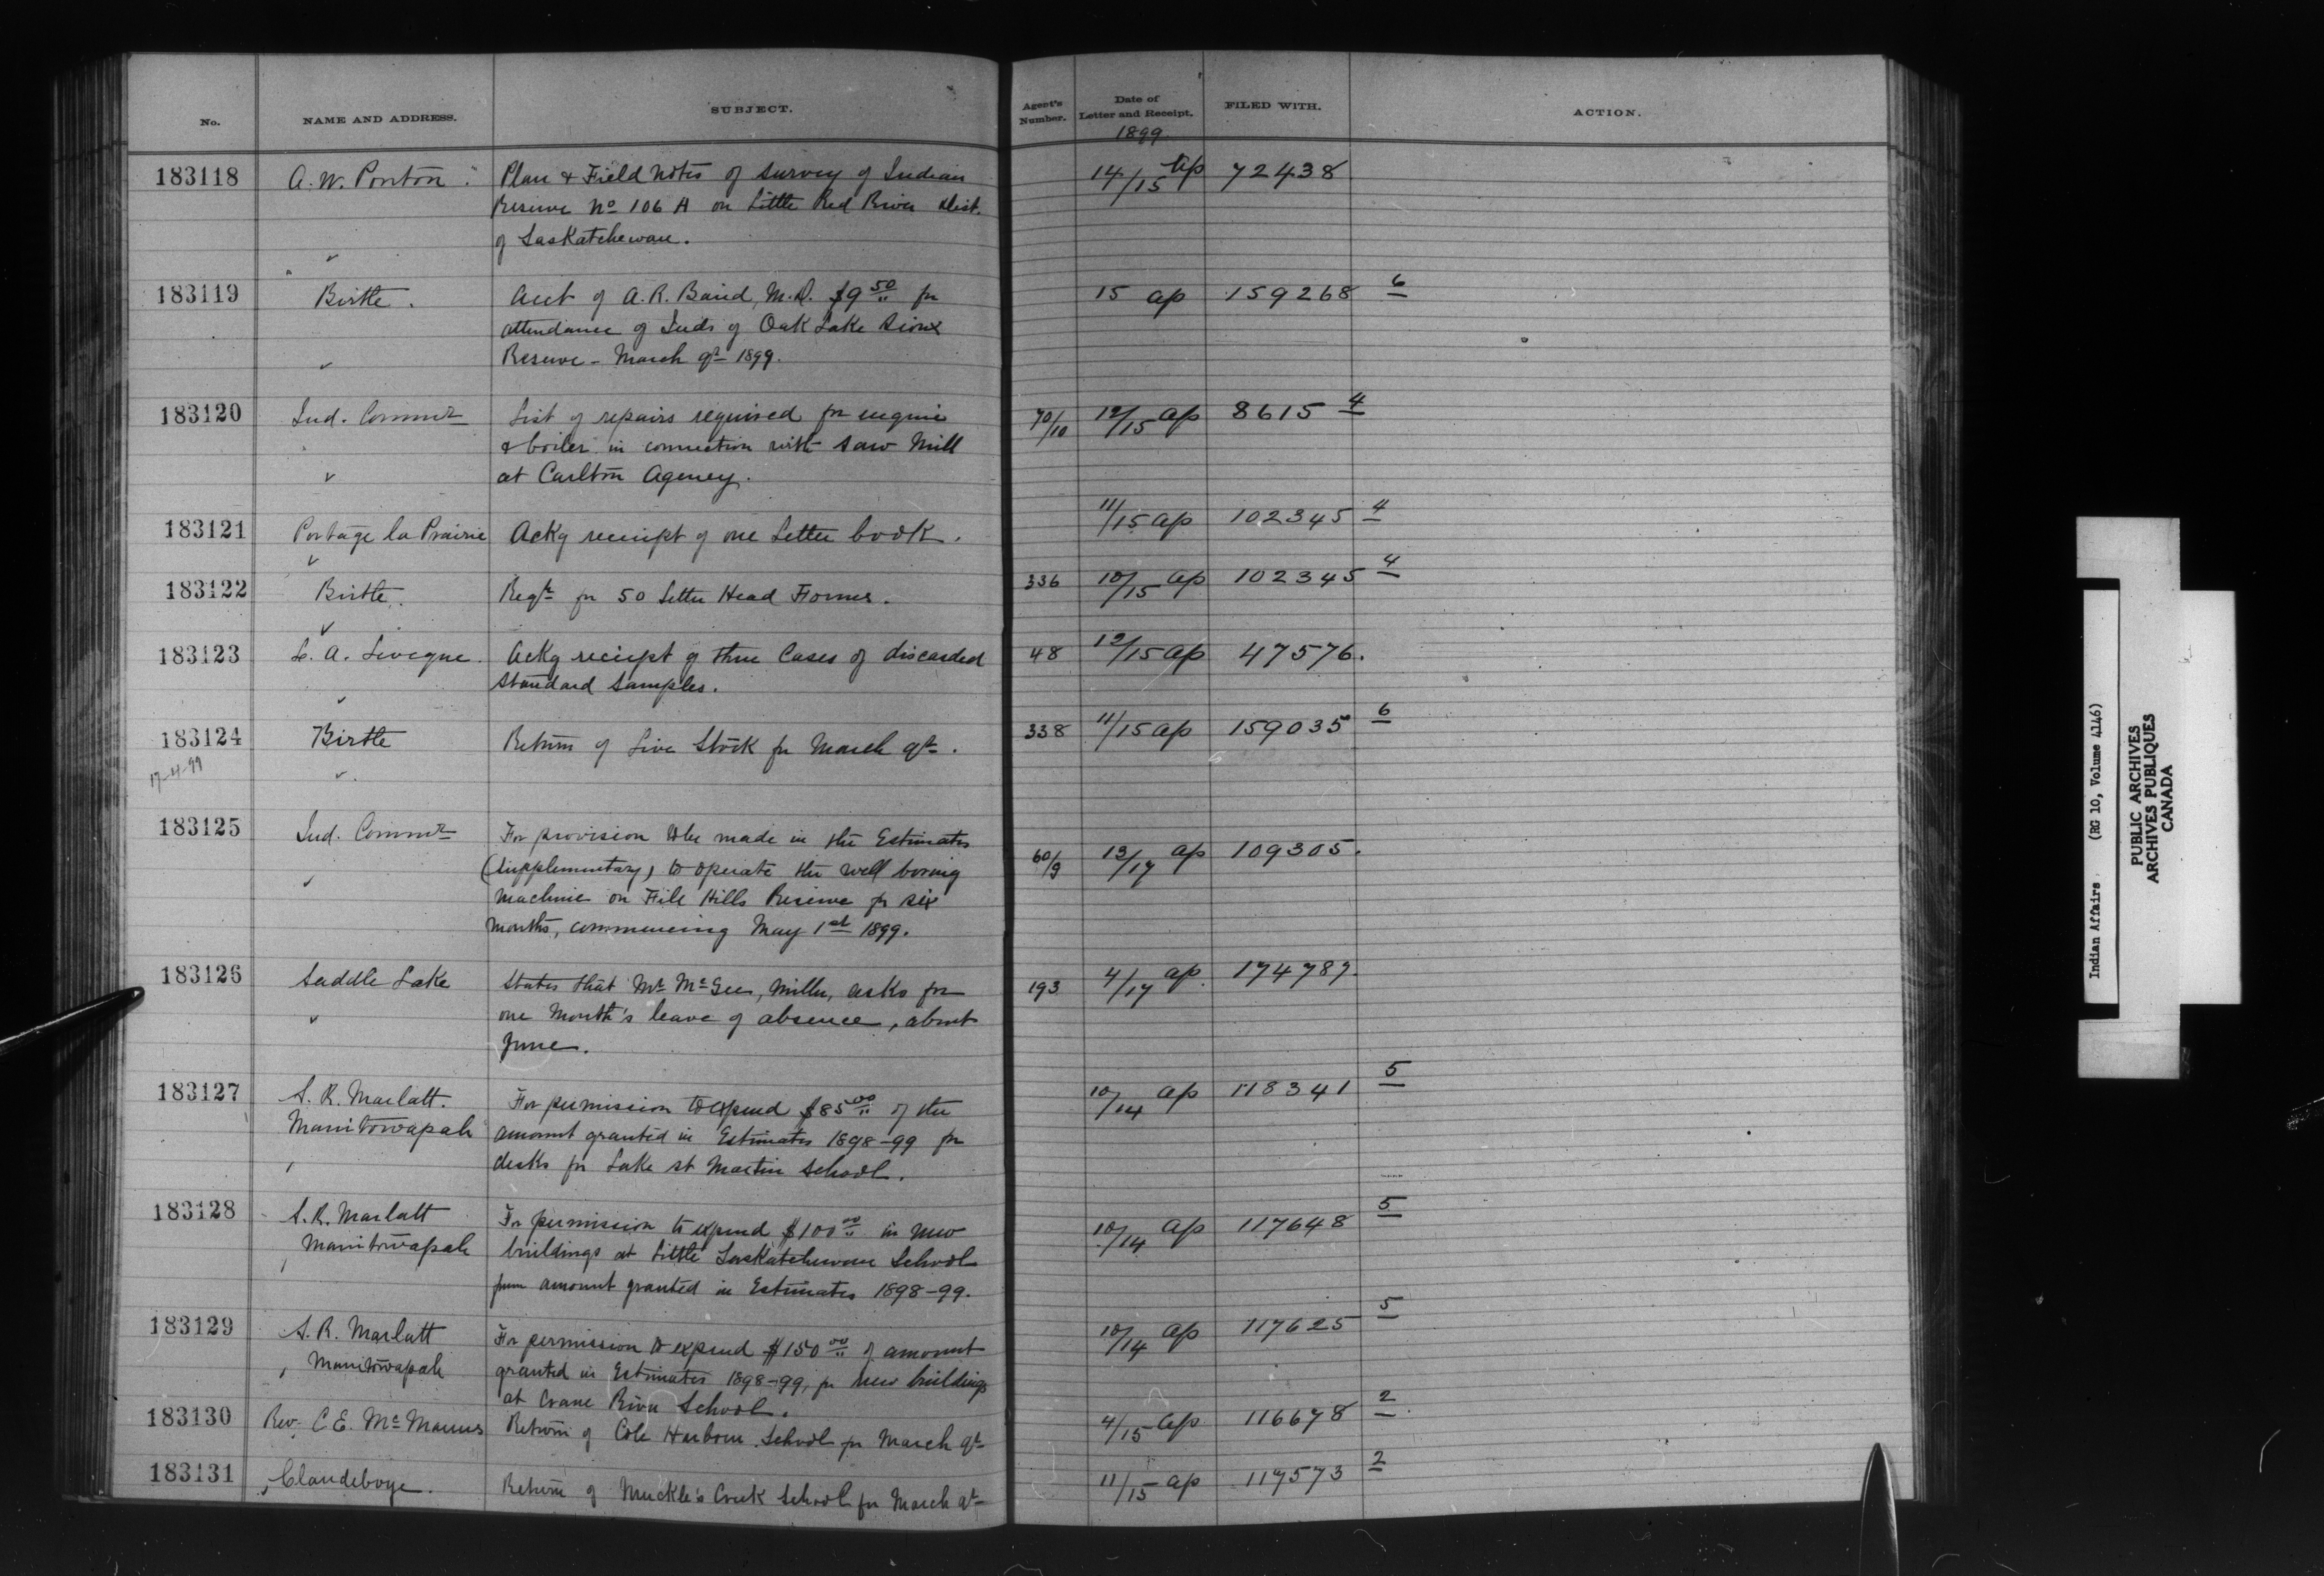 No. NAME AND ADDRESS. SUBJECT. Agent's Number. Date of Letter and Receipt. FILED WITH. ACTION.
1899
183118 A. W. Ponton. Plan & Field Notes of Survey of Indian 14/15 ap 72438
Reserve No 106 A on Little Red River Dist.
of Saskatchewan.
183119 Birtle. Acct of A. R. Baird, M.D. $9 50 for 15 ap 159268 6
attendance of Inds of Oak Lake Sioux
Reserve - March qr 1899.
183120 Ind. Commr List of repairs required for engine 70/10 12/15 ap 8615 4
& boiler in connection with Saw Mill
at Carlton Agency.
183121 Portage la Prairie Ackg receipt of one Letter book. 11/15 ap 102345 4
183122 Birtle. Reqn for 50 Letter Head Forms. 336 10/15 ap 102345 4
183123 L. A. Leveque. Ackg reciept of three Cases of discarded 48 12/15 ap 47576.
Standard Samples.
183124 Birtle Return of Live Stock for March qr. 338 11/15 ap 159035 6
17-4-99
183125 Ind. Commr For provision to be made in the Estimates 60/9 13/17 ap 109305.
(Supplementary) to operate the well boring
machine on File Hills Reserve for six
months, commencing May 1st 1899.
183126 Saddle Lake States that Mr McGee, Miller, asks for 193 4/17 ap. 174787.
one Month's leave of absence, about
June.
183127 S. R. Marlatt. For permission to expend $85 00 of the 10/14 ap 118341 5
Manitowapah amount granted in Estimates 1898-99 for
desks for Lake St Martin School.
183128 S. R. Marlatt For permission to expend $100 00 in new 10/14 ap 117648 5
Manitowapah buildings at Little Saskatchewan School
from amount granted in Estimates 1898-99.
183129 S. R. Marlatt For permission to expend $150 00 of amount 10/14 ap 117625 5
Manitowapah granted in Estimates 1898-99, for new buildings
at Crane River School.
183130 Rev. C E. McManus Return of Cole Harbour School for March qr 4/15 ap 116678 2
183131 Clandeboye. Return of Muckle's Creek School for March qr 11/15 ap 117573 2
Indian Affairs (RG 10, Volume 4146)
PUBLIC ARCHIVES
ARCHIVES PUBLIQUES
CANADA